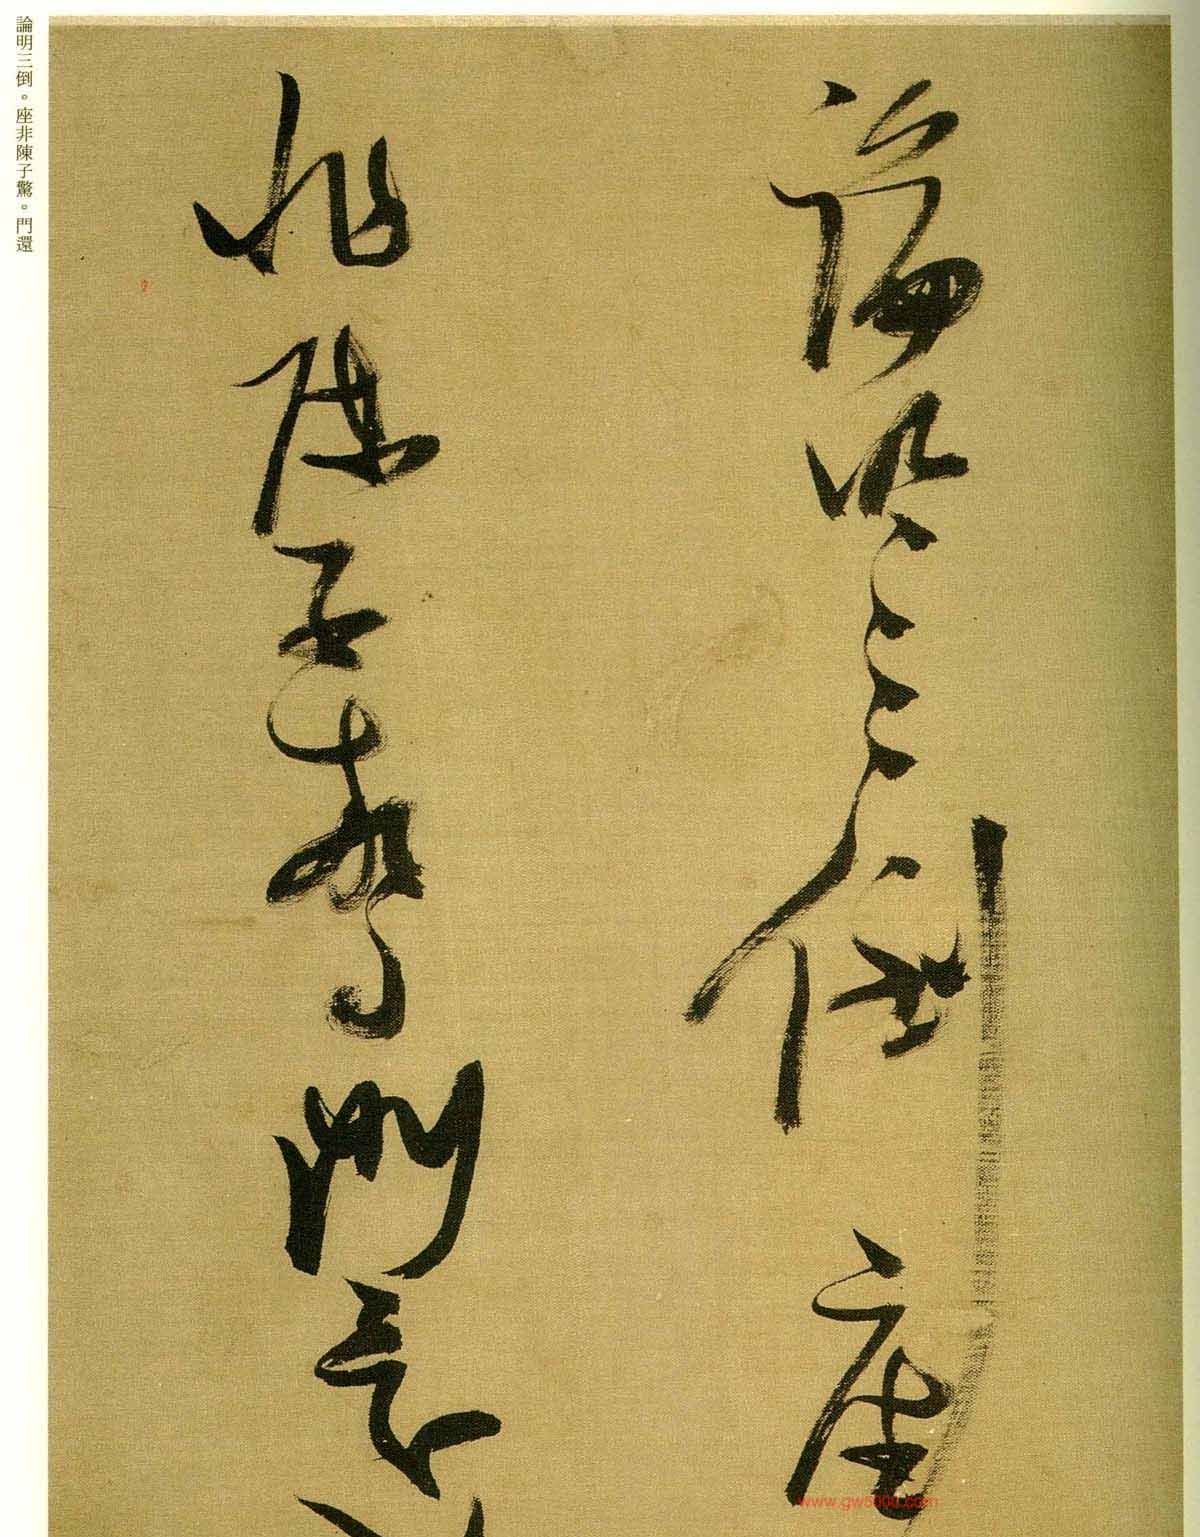 論明三倒座
非陳子驚門還
論明三倒。座非陳子驚。門還
www.gw5000.com